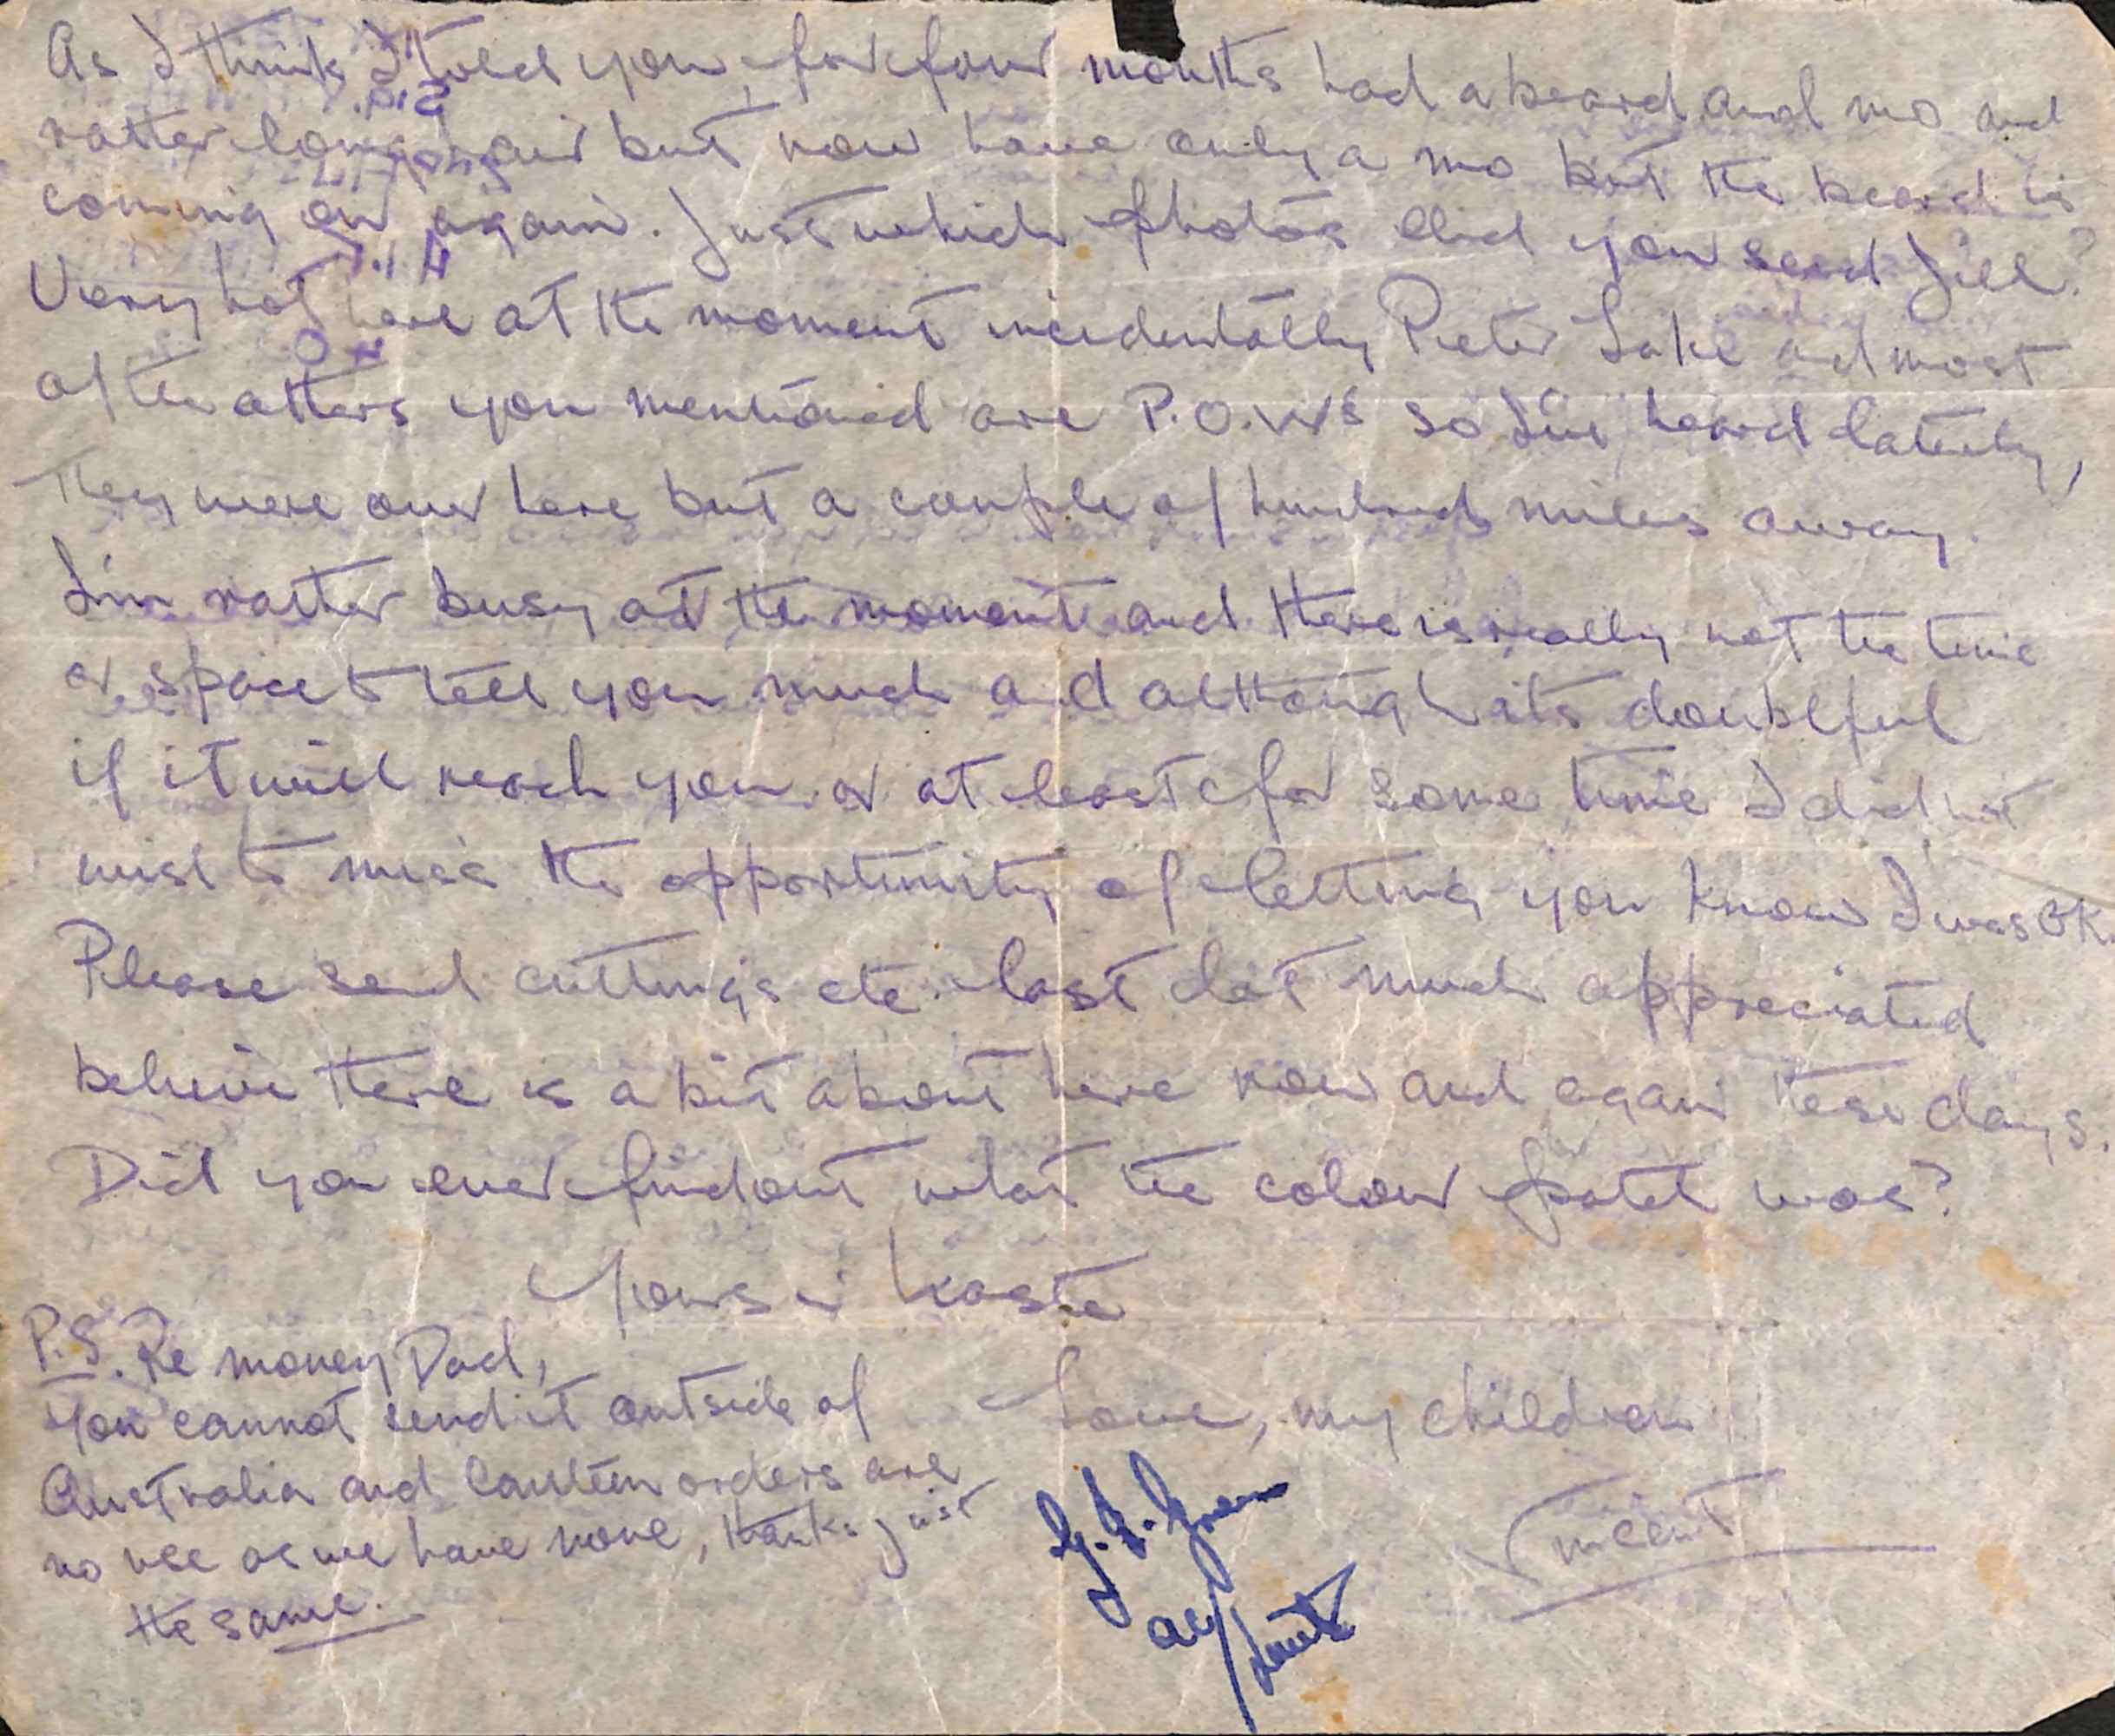 As I think I told you, for four months had a beard and mo and
rather long hair but now have only a mo but the beard is
coming on again. Just which photos did you send Jill?
Very hot here at the moment incidentally Peter Lake and most
of the others you mentioned are P.O.Ws so I've heard lately,
They were over here but a couple of hundred miles away.
I'm rather busy at the moment and there is really not the time
or space to tell you much and although its doubtful
if it will reach you or at least for some time I did not
wish to miss the opportunity of letting you know I was OK.
Please send cuttings etc. last lot much appreciated
believe there is a bit about here now and again these days.
Did you ever find out what the colour patch was?
Yours in haste
Love, my children
Vincent
P.S. Re money Dad,
You cannot send it outside of
Australia and Canteen orders are
no use as we have none, thanks just
the same.